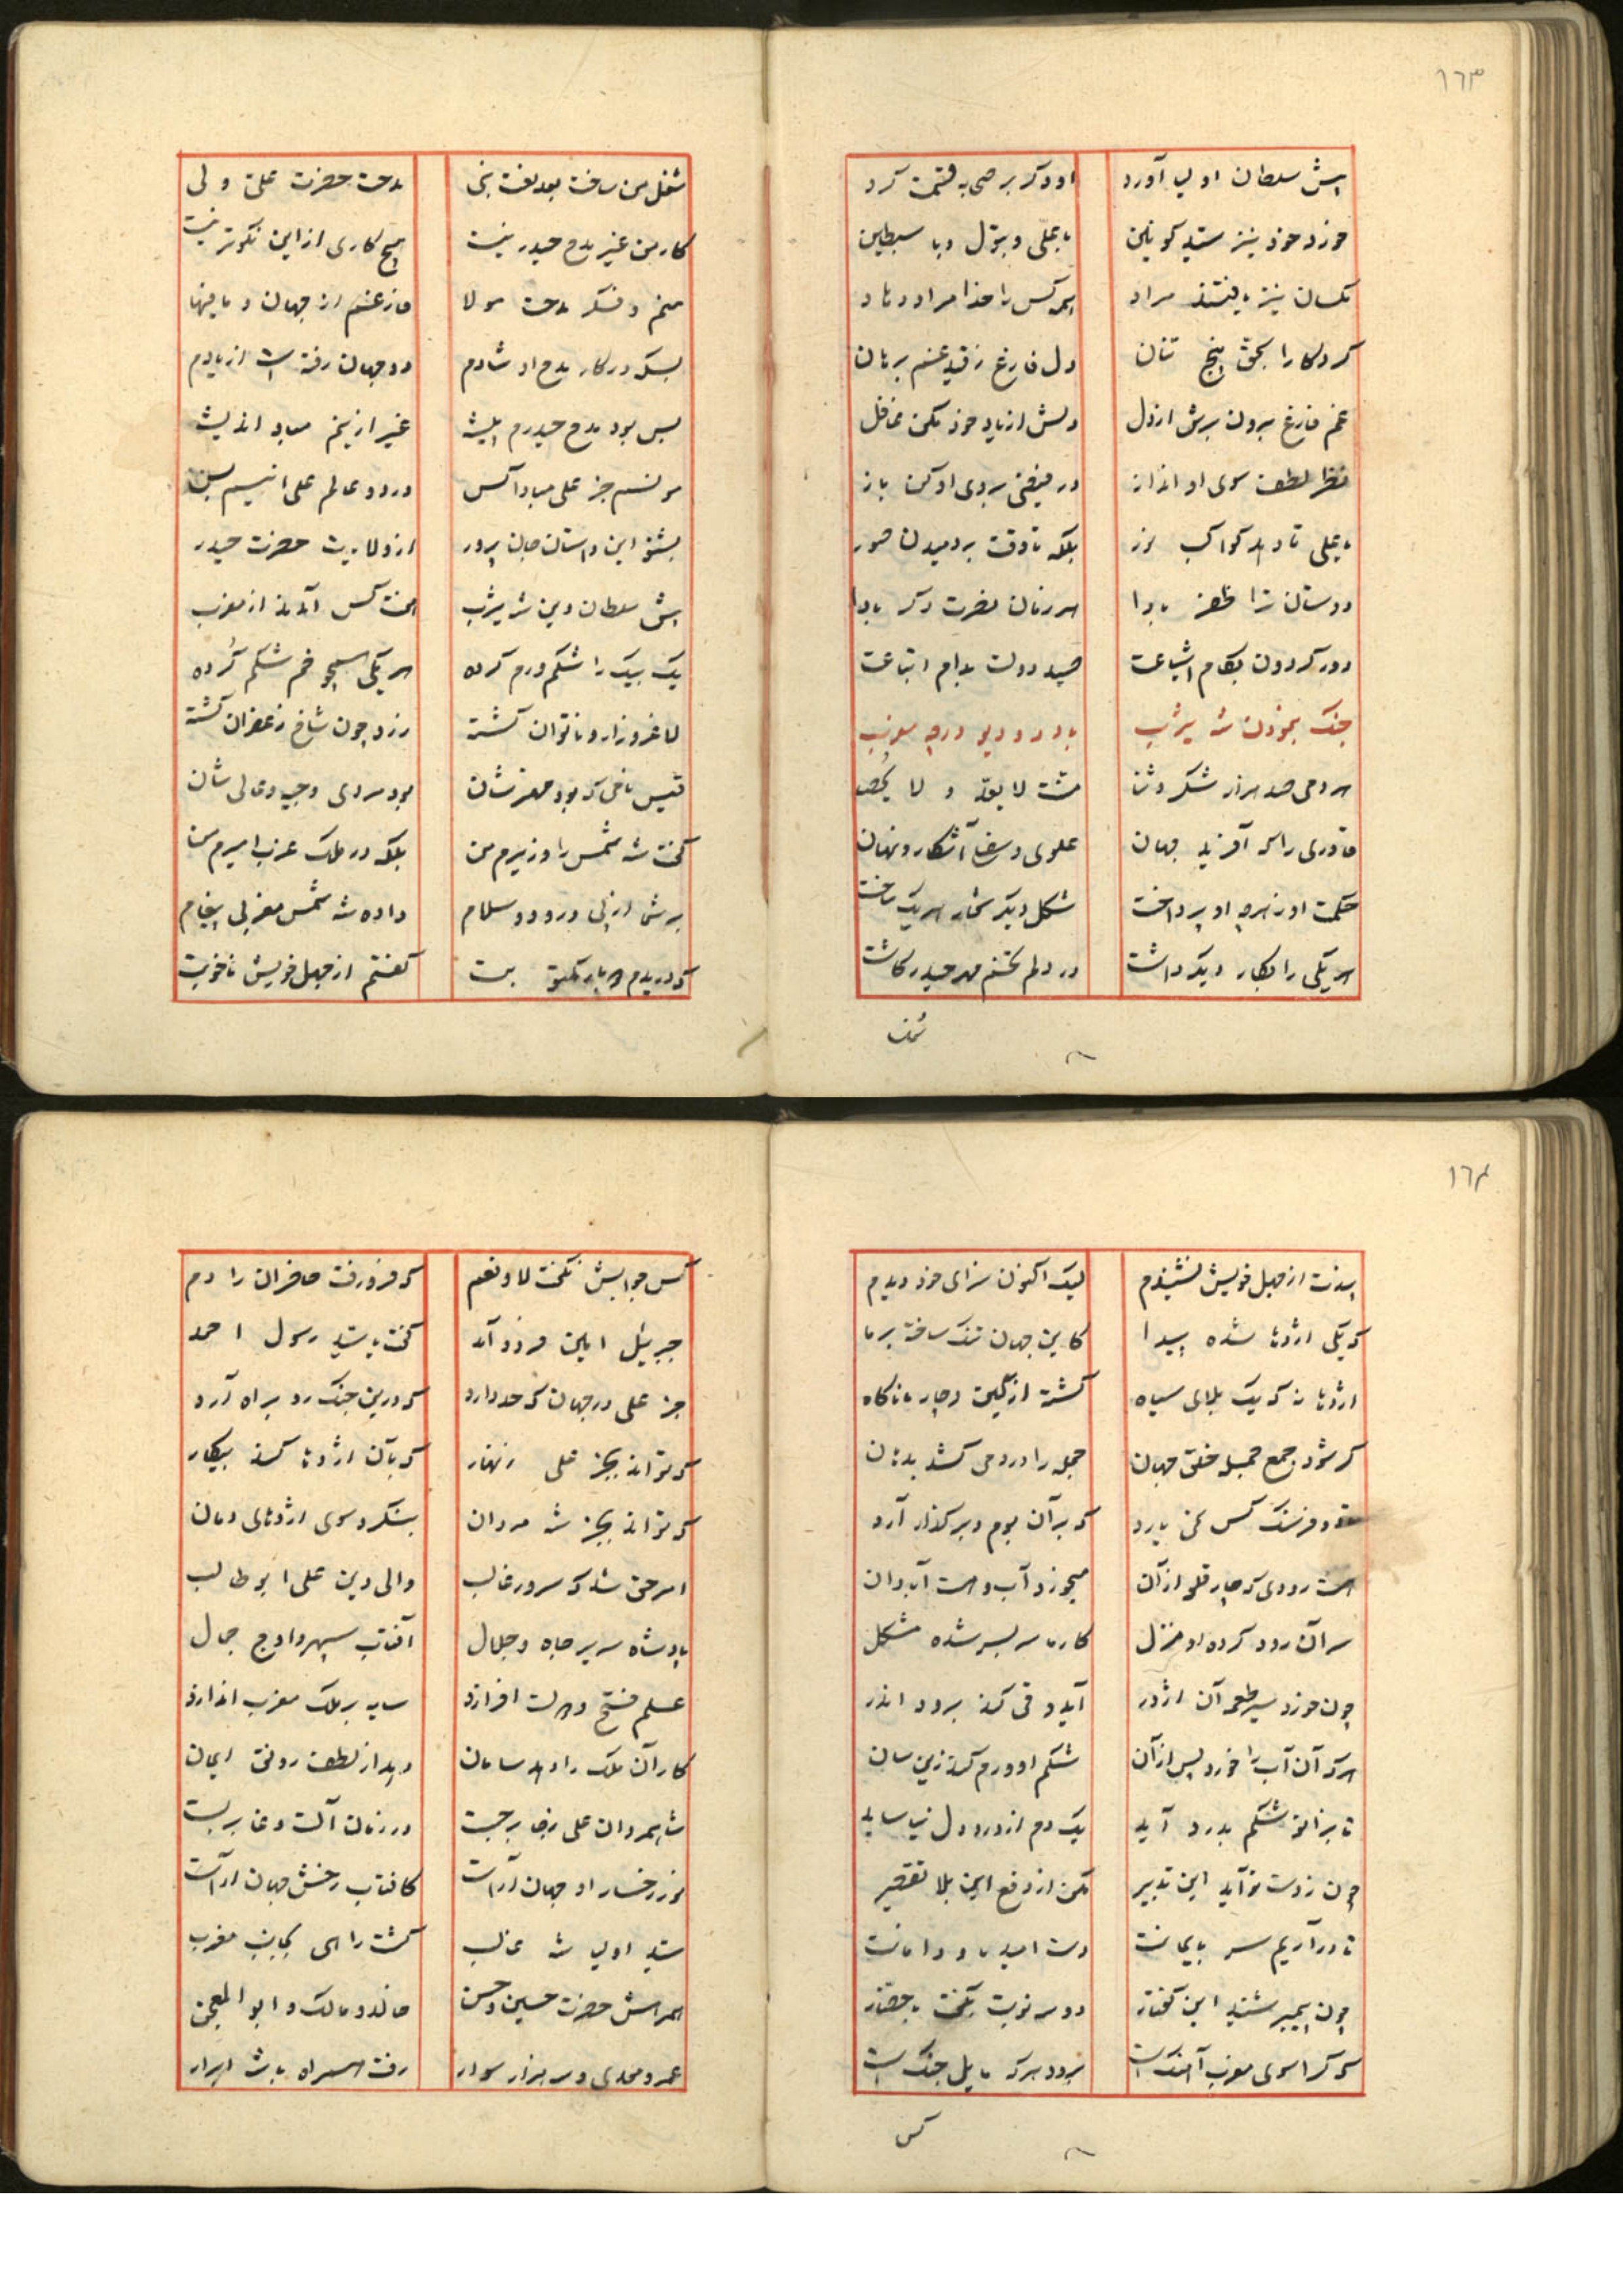 ١٦٣
پیش سلطان اولیا آورد
او دکر بر صحابه قسمت کرد
خورد خود نیز سید کونین
با علی و بتول و با سبطین
کسان نیز یافتند مراد
همه کس را خدا مراد دهاد
کردکارا بحق پنج تنان
دل فارغ ز قید غم برهان
غم فارغ برون برش از دل
دلش از یاد خود مکن غافل
نظر لطف سوی او انداز
در فیضی بروی او کن باز
یا علی تا دهد کواکب نور
بلکه تا وقت بر دمیدن صور
دوستان ترا ظفر بادا
هر زمان نصرت دکر بادا
دور کردون بکام اشیاعت
صید دولت بدام اتباعت
جنک نمودن شه یثرب
با در دیو در مغرب
هر دمی صد هزار شکر و ثنا
مدحت لا یعد و لا یحصی
قادری را که آفرید جهان
علوی و سفلی آشکار و نهان
حکمت او ز هرچه او پرداخت
شکل دیکر بهر یک ساخت
هر یکی را بکار دیکر داشت
در دلم تخم مهر حیدر کاشت
شغل
شغل من ساخت بعد نعت نبی
مدحت حضرت علی ولی
کار من غیر مدح حیدر نیست
هیچ کاری از این نکوتر نیست
منم و فکر مدحت مولا
فارغم از جهان و ما فیها
بسکه در کار مدح او شادم
دو جهان رفته است از یادم
بس بود مدح حیدرم پیشه
غیر از اینم مباد اندیشه
مونسم جز علی مبادا کس
در دو عالم علی انیسم بس
بشنو این داستان جان پرور
از ولایت حضرت حیدر
پیش سلطان دین شه یثرب
هفت کس آمدند از مغرب
یک بیک را شکم ورم کرده
هر یکی همچو خم شکم کرده
لاغر و زار و ناتوان کشته
زرد چون شاخ زعفران کشته
قیس نامی که بود مهترشان
بود مردی وجیه و عالی شان
کفت شه شمس را وزیرم من
بلکه در ملک عرب امیرم من
بر شما از پی درود و سلام
داده شه شمس مغربی پیغام
که دریدم هزار مکتوبت
کفتم از جهل خویش ناخوبت
١٦٤
پندت از جهل خویش نشنیدم
لیک اکنون سزای خود دیدم
که یکی اژدها شده پیدا
کاین جهان تنک ساخته بر ما
اژدها نه که یک بلای سیاه
کشته از کین دچار ما ناکاه
کر شود جمع جمله خلق جهان
جمله را در دمی کشد بدهان
دو فرسنک کس نمی یارد
که بر آن بوم و بر کذار آرد
هست رودی که چار قلعه از آن
میخورد آب و هست آبادان
سر آن رود کرده او منزل
کار ما سر بسر شده مشکل
چون خورد سیر طعمه آن اژدر
آید و قی کند برود اندر
هر که آن آب را خورد پس از آن
شکم او ورم کند زین سان
تا بزانو شکم بدرد آید
یک دم از درد دل نیاساید
چون ز دست تو آید این تدبیر
مکن از دفع این بلا تقصیر
تا در آریم سر بایمانت
دست امید ما و دامانت
چون پیمبر شنید این کفتار
دو سه نوبت بکفت با حضار
که کرا سوی مغرب آهنک است
برود هر که مایل جنک است
کس
کس جوابش نکفت لا و نعم
که فرو رفت حاضران را دم
جبرئیل امین فرود آمد
کفت یا سید رسول احمد
جز علی در جهان که حد دارد
که درین جنک رو براه آرد
که تواند بجز علی زنهار
که بآن اژدها کند پیکار
که تواند بجز شه مردان
بنکرد سوی اژدهای دمان
امر حق شد که سرور غالب
والی دین علی ابو طالب
پادشاه سریر جاه و جلال
آفتاب سپهر و اوج جمال
علم فتح و نصرت افرازد
سایه بر ملک مغرب اندازد
کار آن ملک را دهد سامان
دهد از لطف رونق ایمان
شاه مردان علی ز جا برجست
در زمان آلت وغا بر بست
نور رخسار او جهان آراست
کافتاب رخش جهان آراست
سید اولیا شه غالب
کشت راهی بجانب مغرب
همراهش حضرت حسین و حسن
خالد و مالک و ابو المعجن
عمرو معدی و سه هزار سوار
رفت همراه با شه ابرار